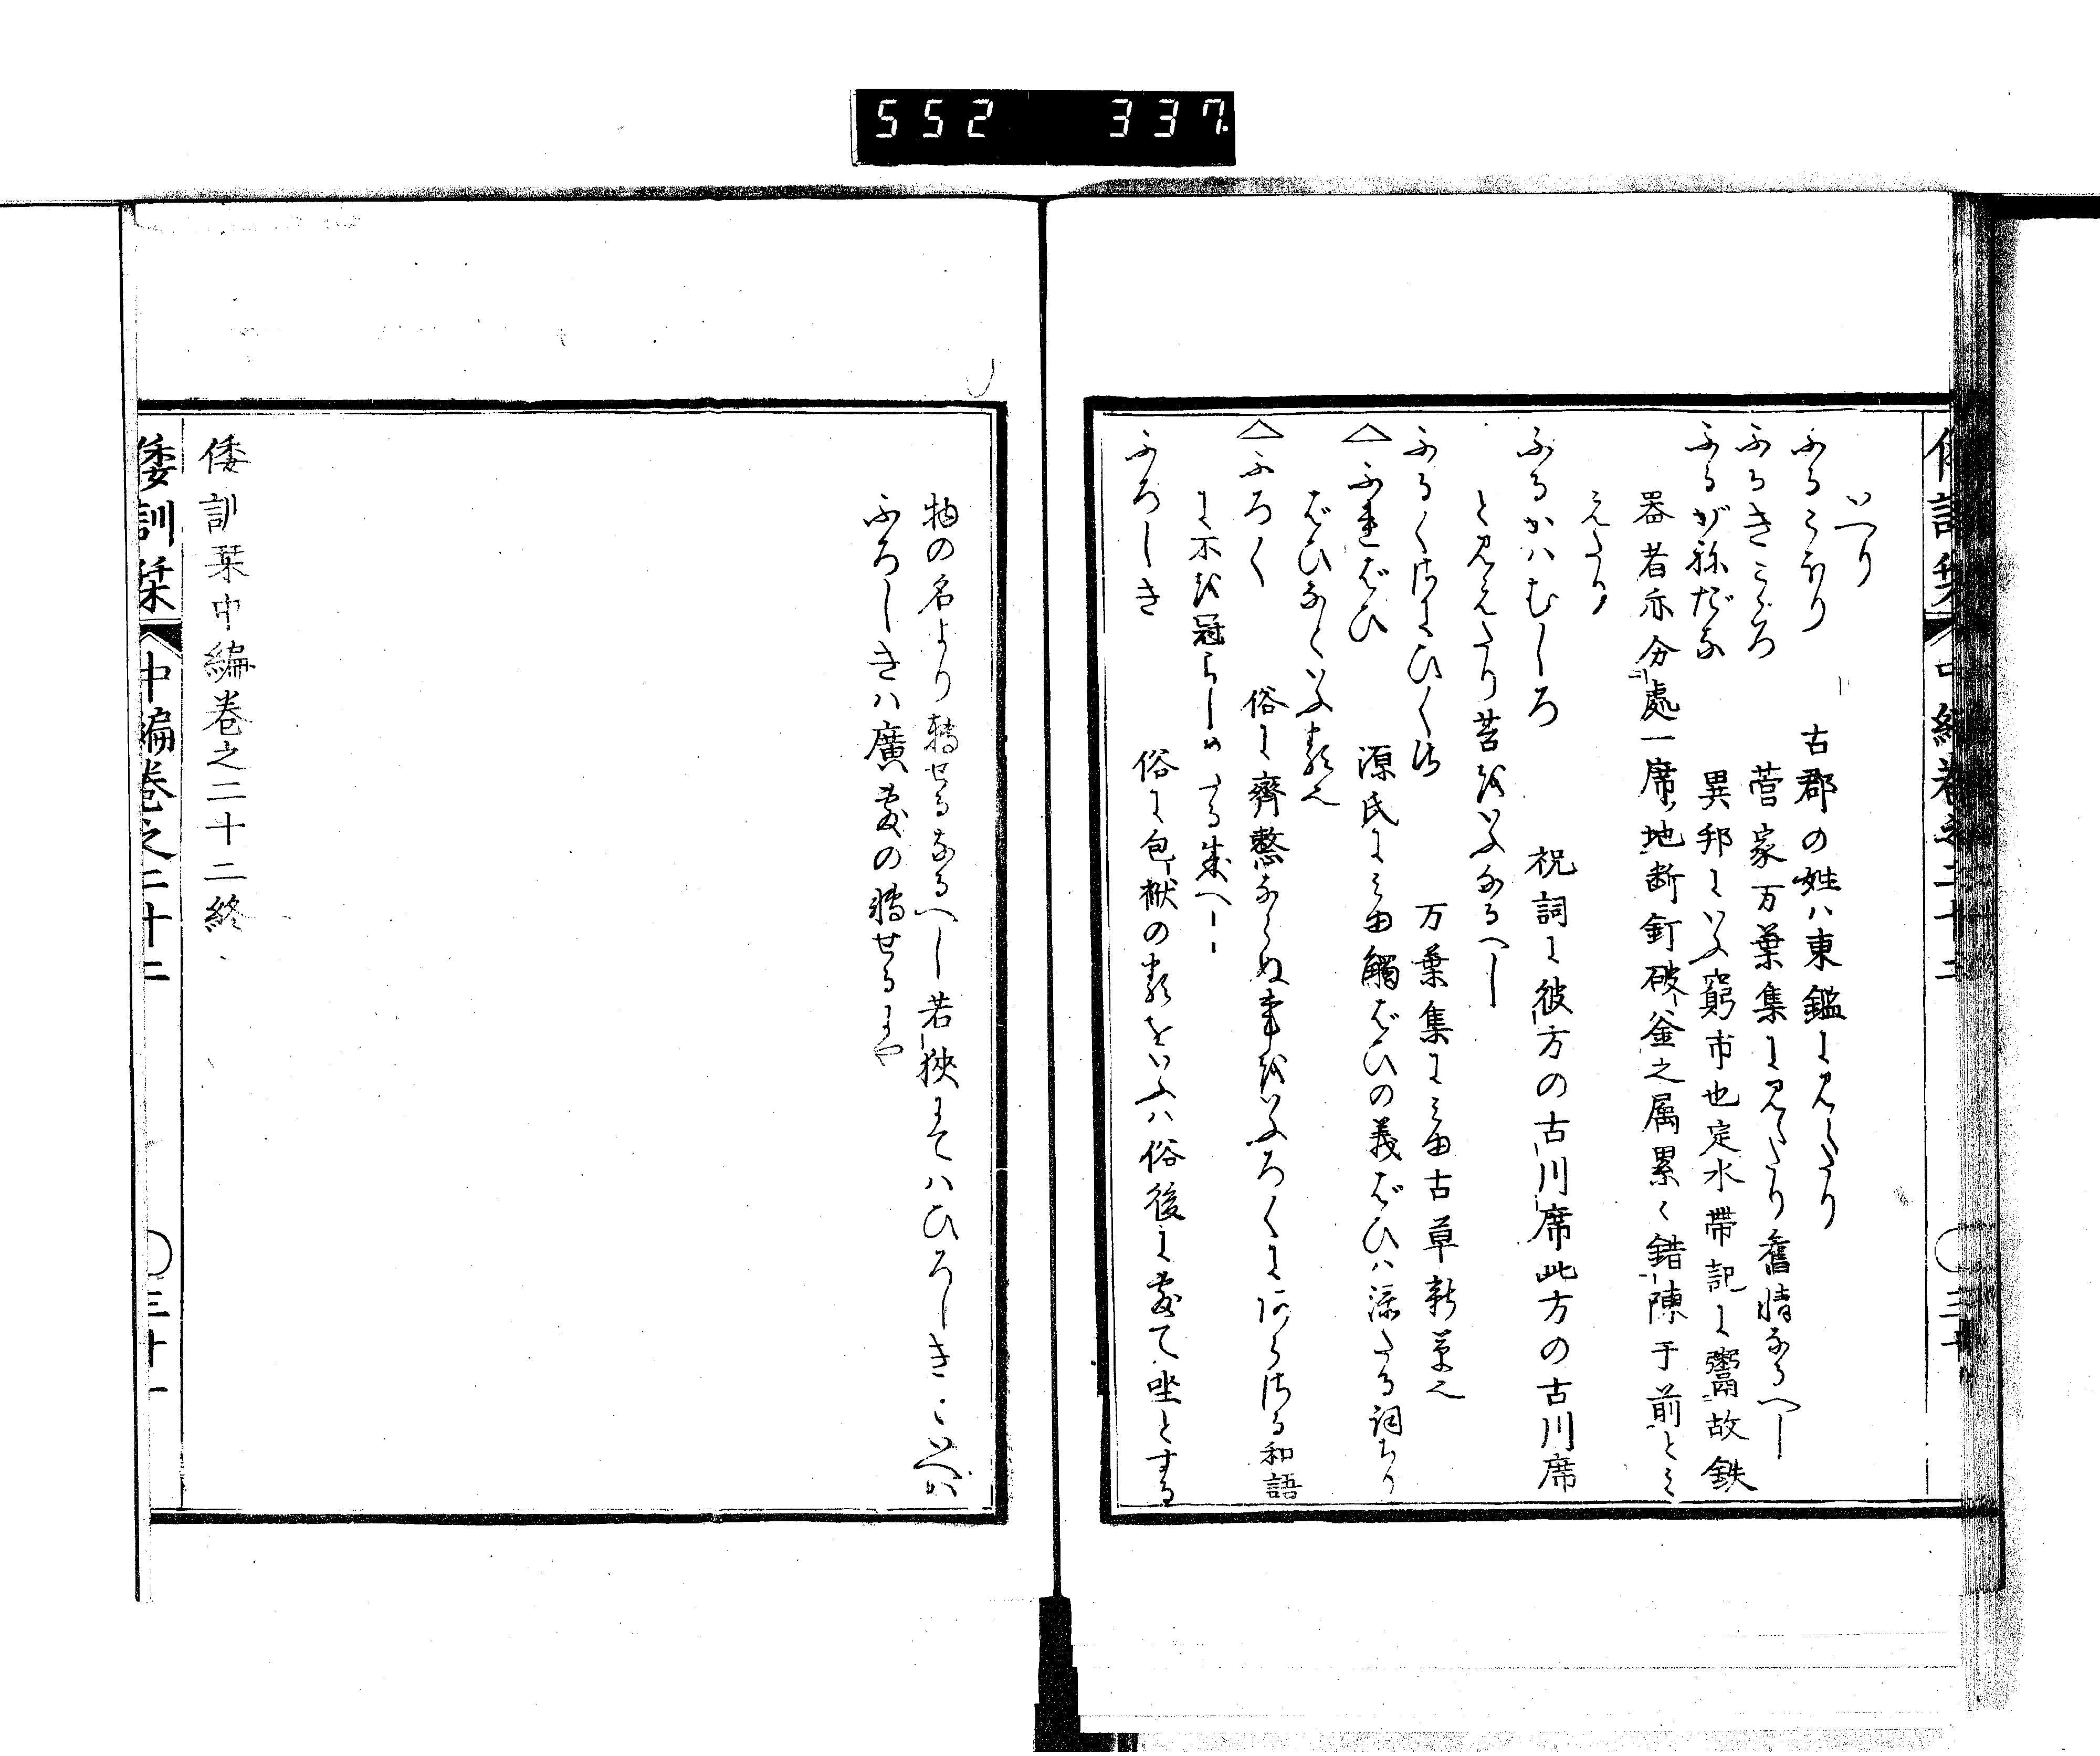 552 337.
いへり
ふるこほり 古郡の姓ハ東鑑に見えたり
ふるきこゝろ 菅家万葉集に見えたり舊情なるへし
ふるがねだな 異邦にいふ窮市也定水帯記に鬻故鉄
器者亦分處一席地断釘破釜之属累く錯陳于前とミ
えたり
ふるかハむしろ 祝詞に彼方の古川席此方の古川席
と見えたり苫をいふなるへし
ふるくさにひくさ 万葉集にミゆ古草新草也
△ふればひ 源氏にミゆ觸ばひの義ばひハ添たる詞なり
ばひなくいふ類也
△ふろく 俗に齊整ならぬ事をいふろくにあらさる和語
に不を冠らしめたる成へし
ふろしき 俗に包袱の類をいふハ俗後に敷て坐とする
物の名より轉せるなるへし若狹にてハひろしきといへバ
ふろしきハ廣敷の轉せるにや
倭訓栞中編巻之二十二終
倭訓栞 中編巻之二十二 〇三十一